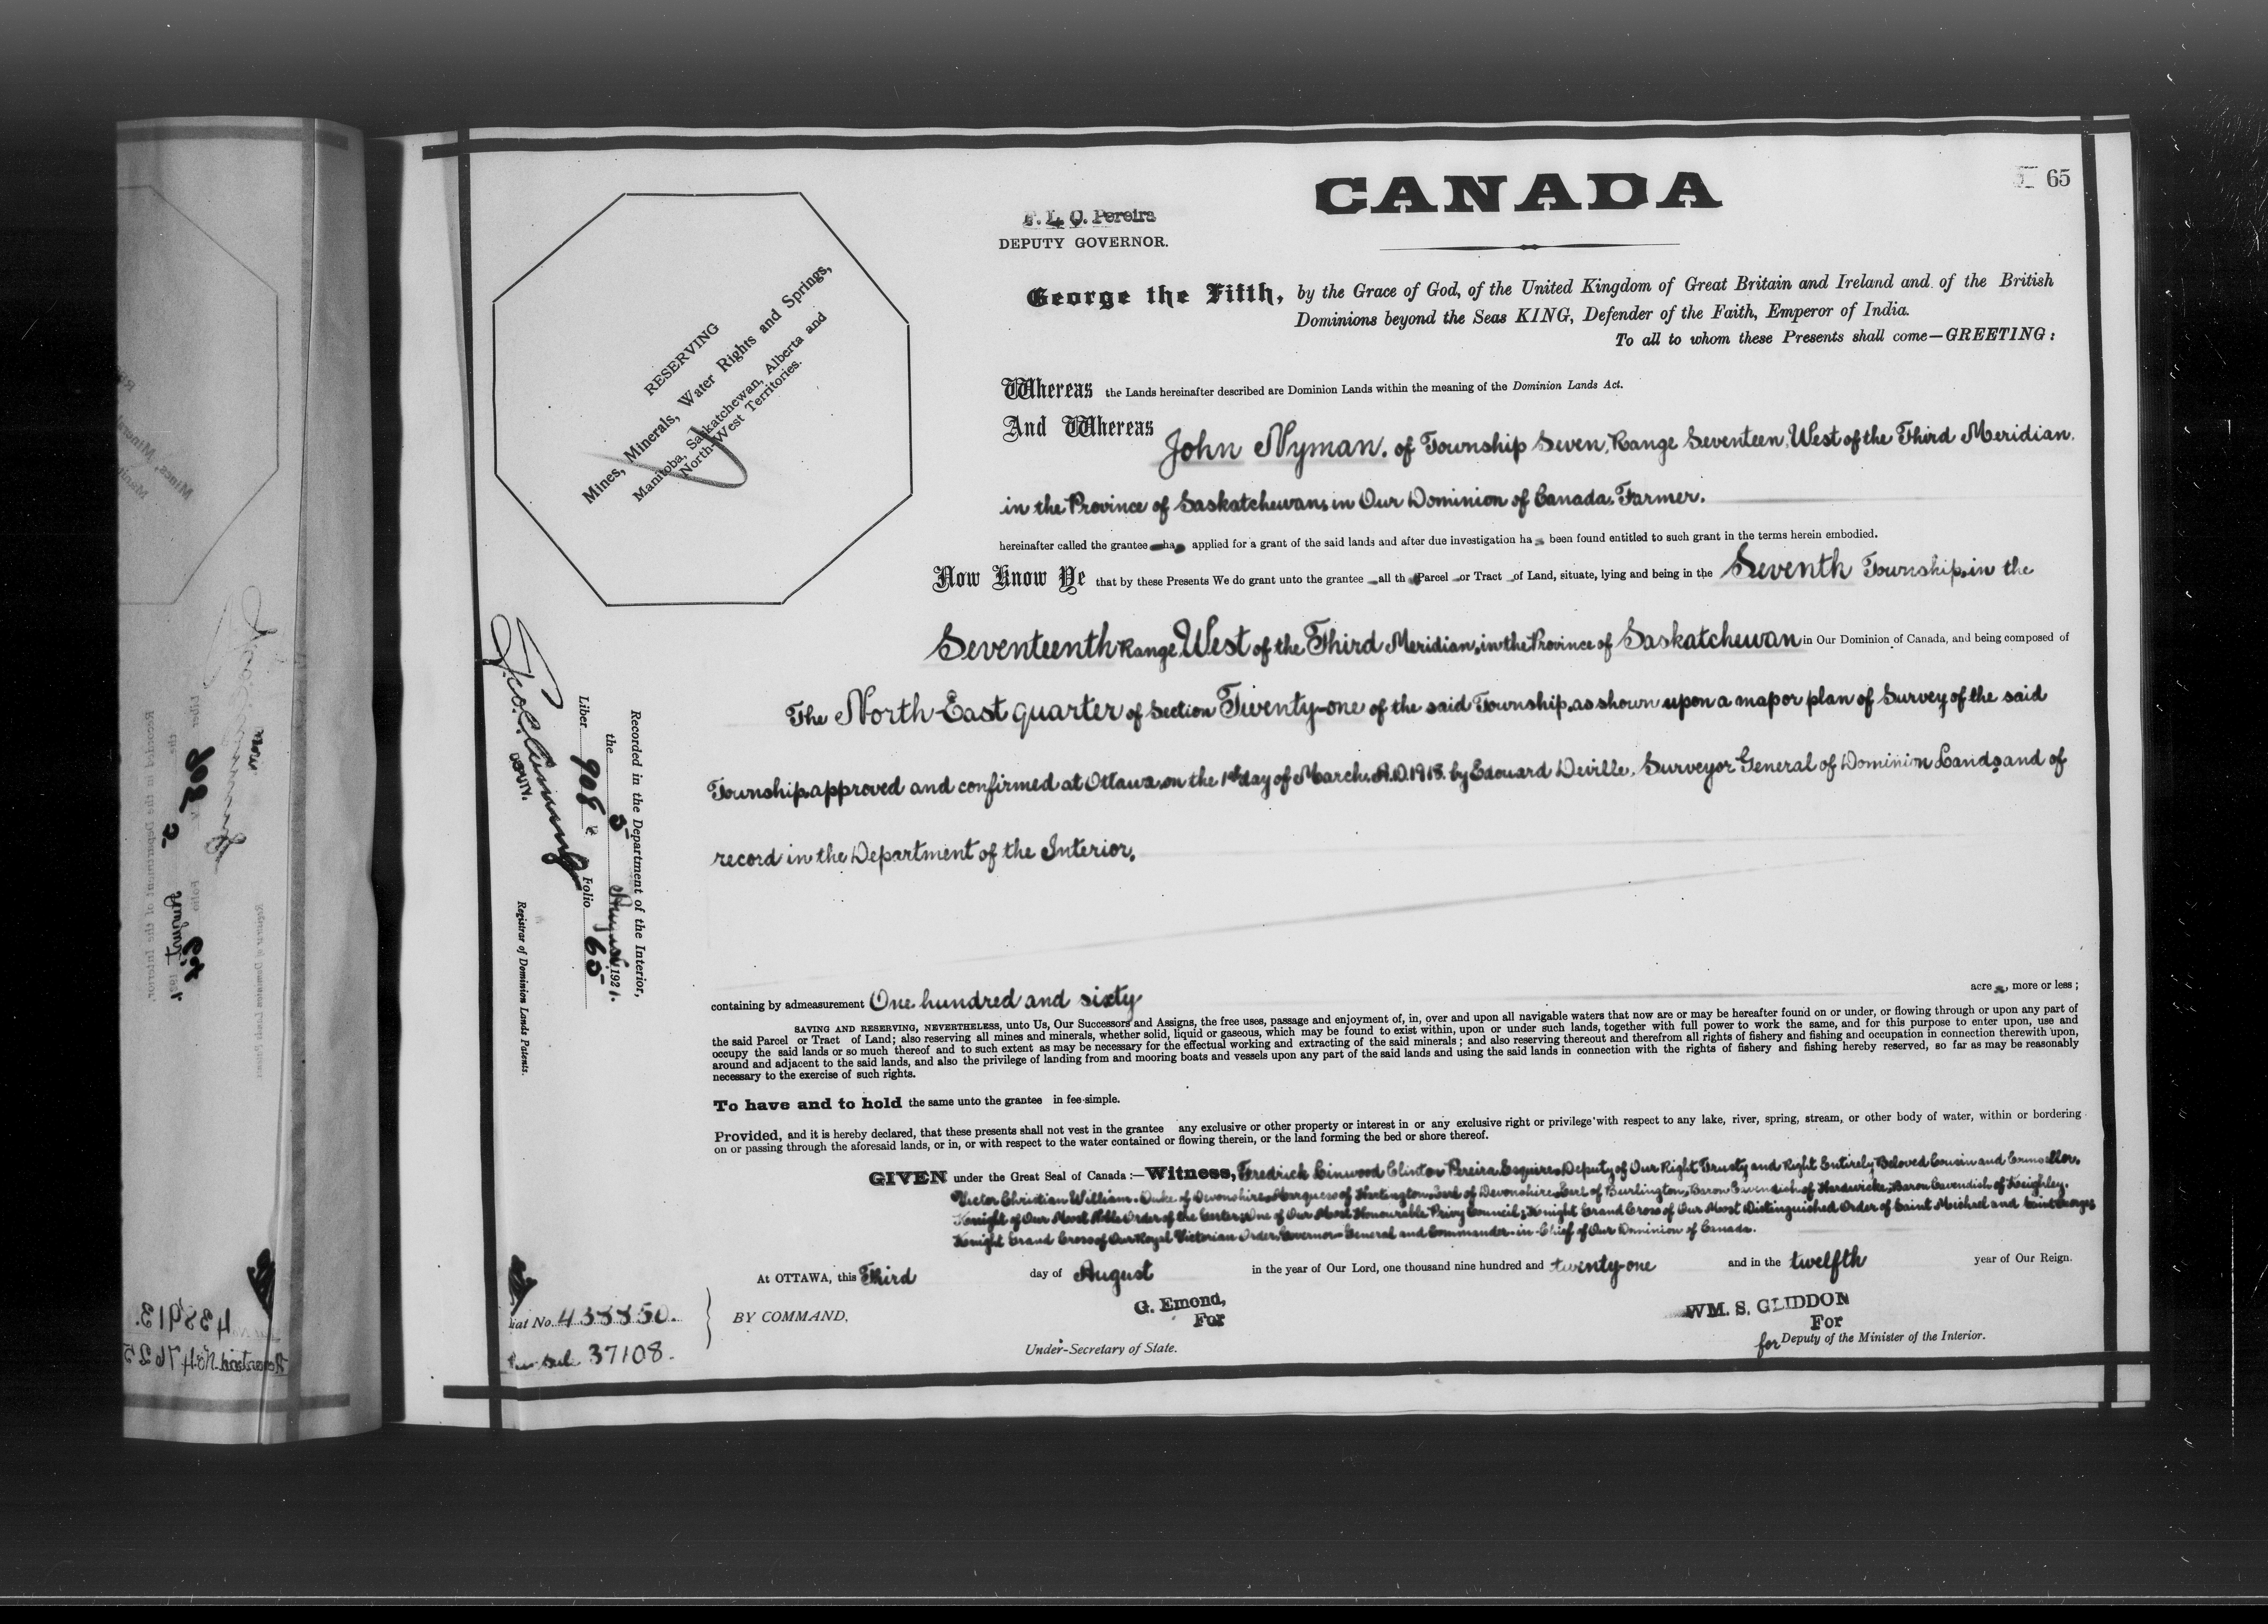 CANADA
65
F. L. C. Pereira
DEPUTY GOVERNOR.
George the Fifth, by the Grace of God, of the United Kingdom of Great Britain and Ireland and of the British
Dominions beyond the Seas KING, Defender of the Faith, Emperor of India.
To all to whom these Presents shall come—GREETING:
RESERVING
Mines, Minerals, Water Rights and Springs,
Manitoba, Saskatchewan, Alberta and
North-West Territories.
Whereas the Lands hereinafter described are Dominion Lands within the meaning of the Dominion Lands Act.
And Whereas John Nyman, of Township Seven, Range Seventeen, West of the Third Meridian,
in the Province of Saskatchewan, in Our Dominion of Canada, Farmer.
hereinafter called the grantee has applied for a grant of the said lands and after due investigation has been found entitled to such grant in the terms herein embodied.
Now Know Ye that by these Presents We do grant unto the grantee all th Parcel or Tract of Land, situate, lying and being in the Seventh Township, in the
Seventeenth Range, West of the Third Meridian, in the Province of Saskatchewan in Our Dominion of Canada, and being composed of
The North-East quarter of Section Twenty-one of the said Township, as shown upon a map or plan of Survey of the said
Township, approved and confirmed at Ottawa, on the 1st day of March, A.D. 1918, by Edouard Deville, Surveyor General of Dominion Lands, and of
record in the Department of the Interior.
containing by admeasurement One hundred and sixty acres, more or less;
SAVING AND RESERVING, NEVERTHELESS, unto Us, Our Successors and Assigns, the free uses, passage and enjoyment of, in, over and upon all navigable waters that now are or may be hereafter found on or under, or flowing through or upon any part of
the said Parcel or Tract of Land; also reserving all mines and minerals, whether solid, liquid or gaseous, which may be found to exist within, upon or under such lands, together with full power to work the same, and for this purpose to enter upon, use and
occupy the said lands or so much thereof and to such extent as may be necessary for the effectual working and extracting of the said minerals; and also reserving thereout and therefrom all rights of fishery and fishing and occupation in connection therewith upon,
around and adjacent to the said lands, and also the privilege of landing from and mooring boats and vessels upon any part of the said lands and using the said lands in connection with the rights of fishery and fishing hereby reserved, so far as may be reasonably
necessary to the exercise of such rights.
To have and to hold the same unto the grantee in fee simple.
Provided, and it is hereby declared, that these presents shall not vest in the grantee any exclusive or other property or interest in or any exclusive right or privilege with respect to any lake, river, spring, stream, or other body of water, within or bordering
on or passing through the aforesaid lands, or in, or with respect to the water contained or flowing therein, or the land forming the bed or shore thereof.
GIVEN under the Great Seal of Canada:—Witness, Fredrick Linwood Clinton Pereira, Esquire, Deputy of Our Right Trusty and Right Entirely Beloved Cousin and Counsellor,
Victor Christian William, Duke of Devonshire, Marquess of Hartington, Earl of Devonshire, Earl of Burlington, Baron Cavendish of Hardwicke, Baron Cavendish of Keighley,
Knight of Our Most Noble Order of the Garter; One of Our Most Honourable Privy Council; Knight Grand Cross of Our Most Distinguished Order of Saint Michael and Saint George;
Knight Grand Cross of Our Royal Victorian Order; Governor-General and Commander-in-Chief of Our Dominion of Canada.
At OTTAWA, this Third day of August in the year of Our Lord, one thousand nine hundred and twenty-one and in the twelfth year of Our Reign.
BY COMMAND,
G. Emond,
For
Under-Secretary of State.
WM. S. GLIDDON
For
for Deputy of the Minister of the Interior.
Recorded in the Department of the Interior,
the 5 August 1921.
Liber 908 Folio 65
DEPUTY.
Registrar of Dominion Lands Patents.
iat No. 433350.
37108.